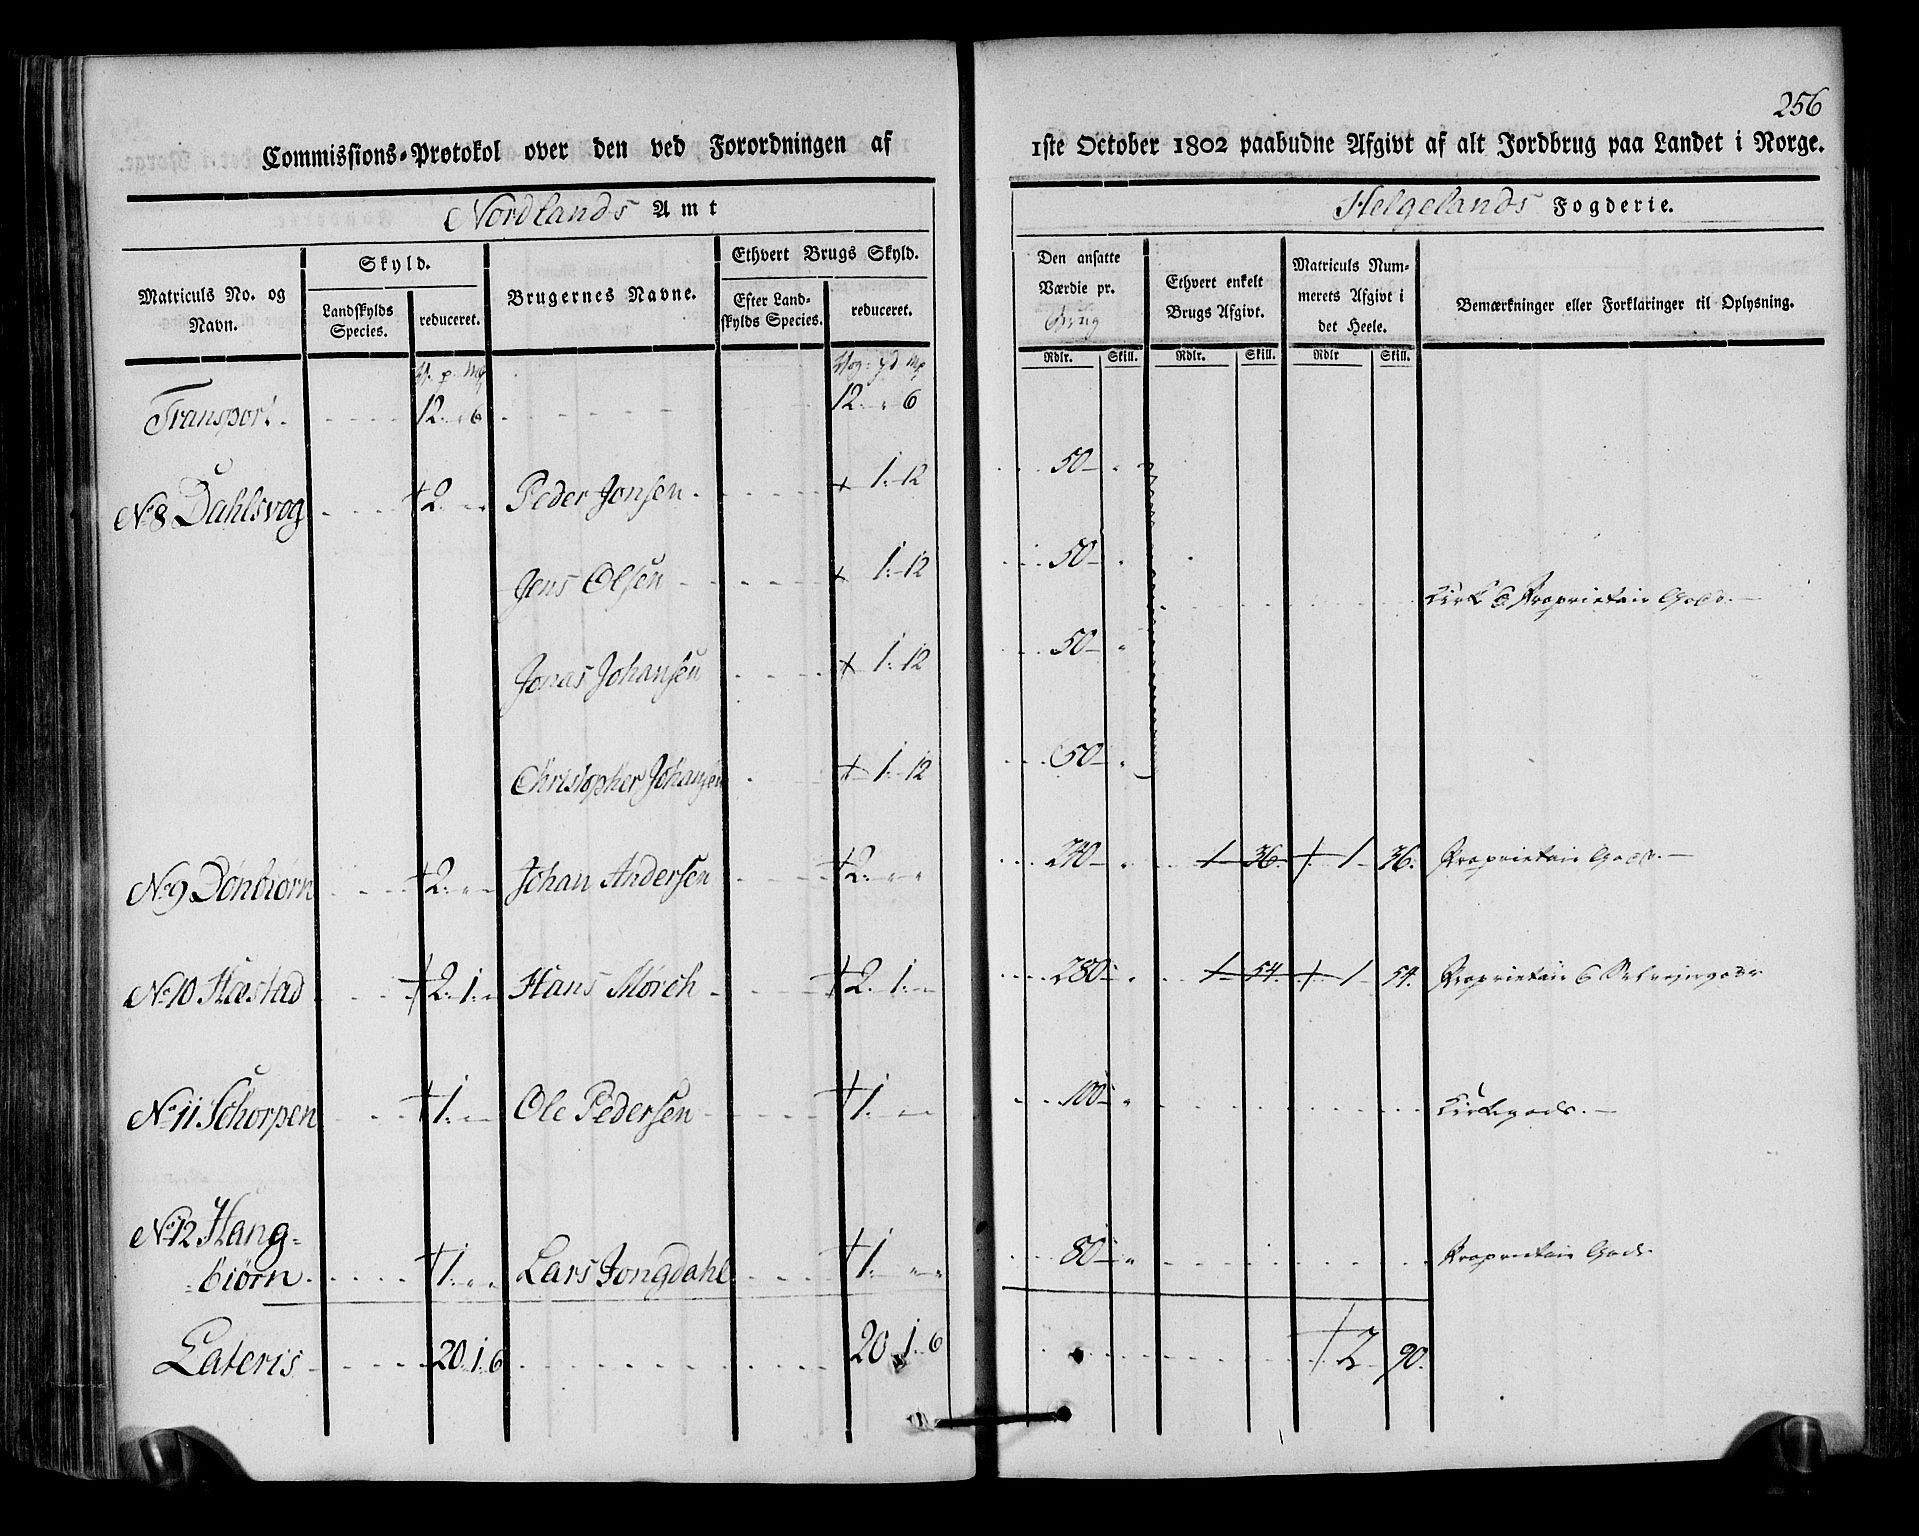 256
Commissions-Protokol over den ved Forordningen af 1ste October 1802 paabudne Afgivt af alt Jordbrug paa Landet i Norge.
Nordlands Amt
Helgelands Fogderie.
Matriculs No. og Navn.
Skyld.
Landskylds Species.
reduceret.
Brugernes Navne.
Ethvert Brugs Skyld.
Efter Landskylds Species.
reduceret.
Den ansatte Værdie pr.
Ethvert enkelt Brugs Afgivt.
Matriculs Nummerets Afgivt i det Heele.
Bemærkninger eller Forklaringer til Oplysning.
Rdlr. Skill. Rdlr. Skill. Rdlr Skill.
Transport. 12. " 6 12. " 6
No 8 Dahlsvog +2. " " Peder Jonsen + 1. 12 50 "
Jens Olsen + 1. 12 50 " Kirke & Proprietair Gods.
Jonas Johansen + 1. 12 50 "
Christopher Johansen + 1. 12 50 "
No 9 Dönbiörn +2. " " Johan Andersen +2. " " 240 " 1 36. + 1 36. Proprietair Gods.
No 10 Hæstad +2. 1. " Hans Mörch +2. 1. " 280 " 1 54. + 1 54. Proprietair & Selvejergods
No 11 Schorpen +1. " " Ole Pedersen +1. " 100 " Kirkegods.
No 12 Hang=
=biörn +1. " " Lars Jongdahl +1. " " 80 " Proprietair Gods
Lateris 20. 1. 6 20. 1. 6 +2 90.